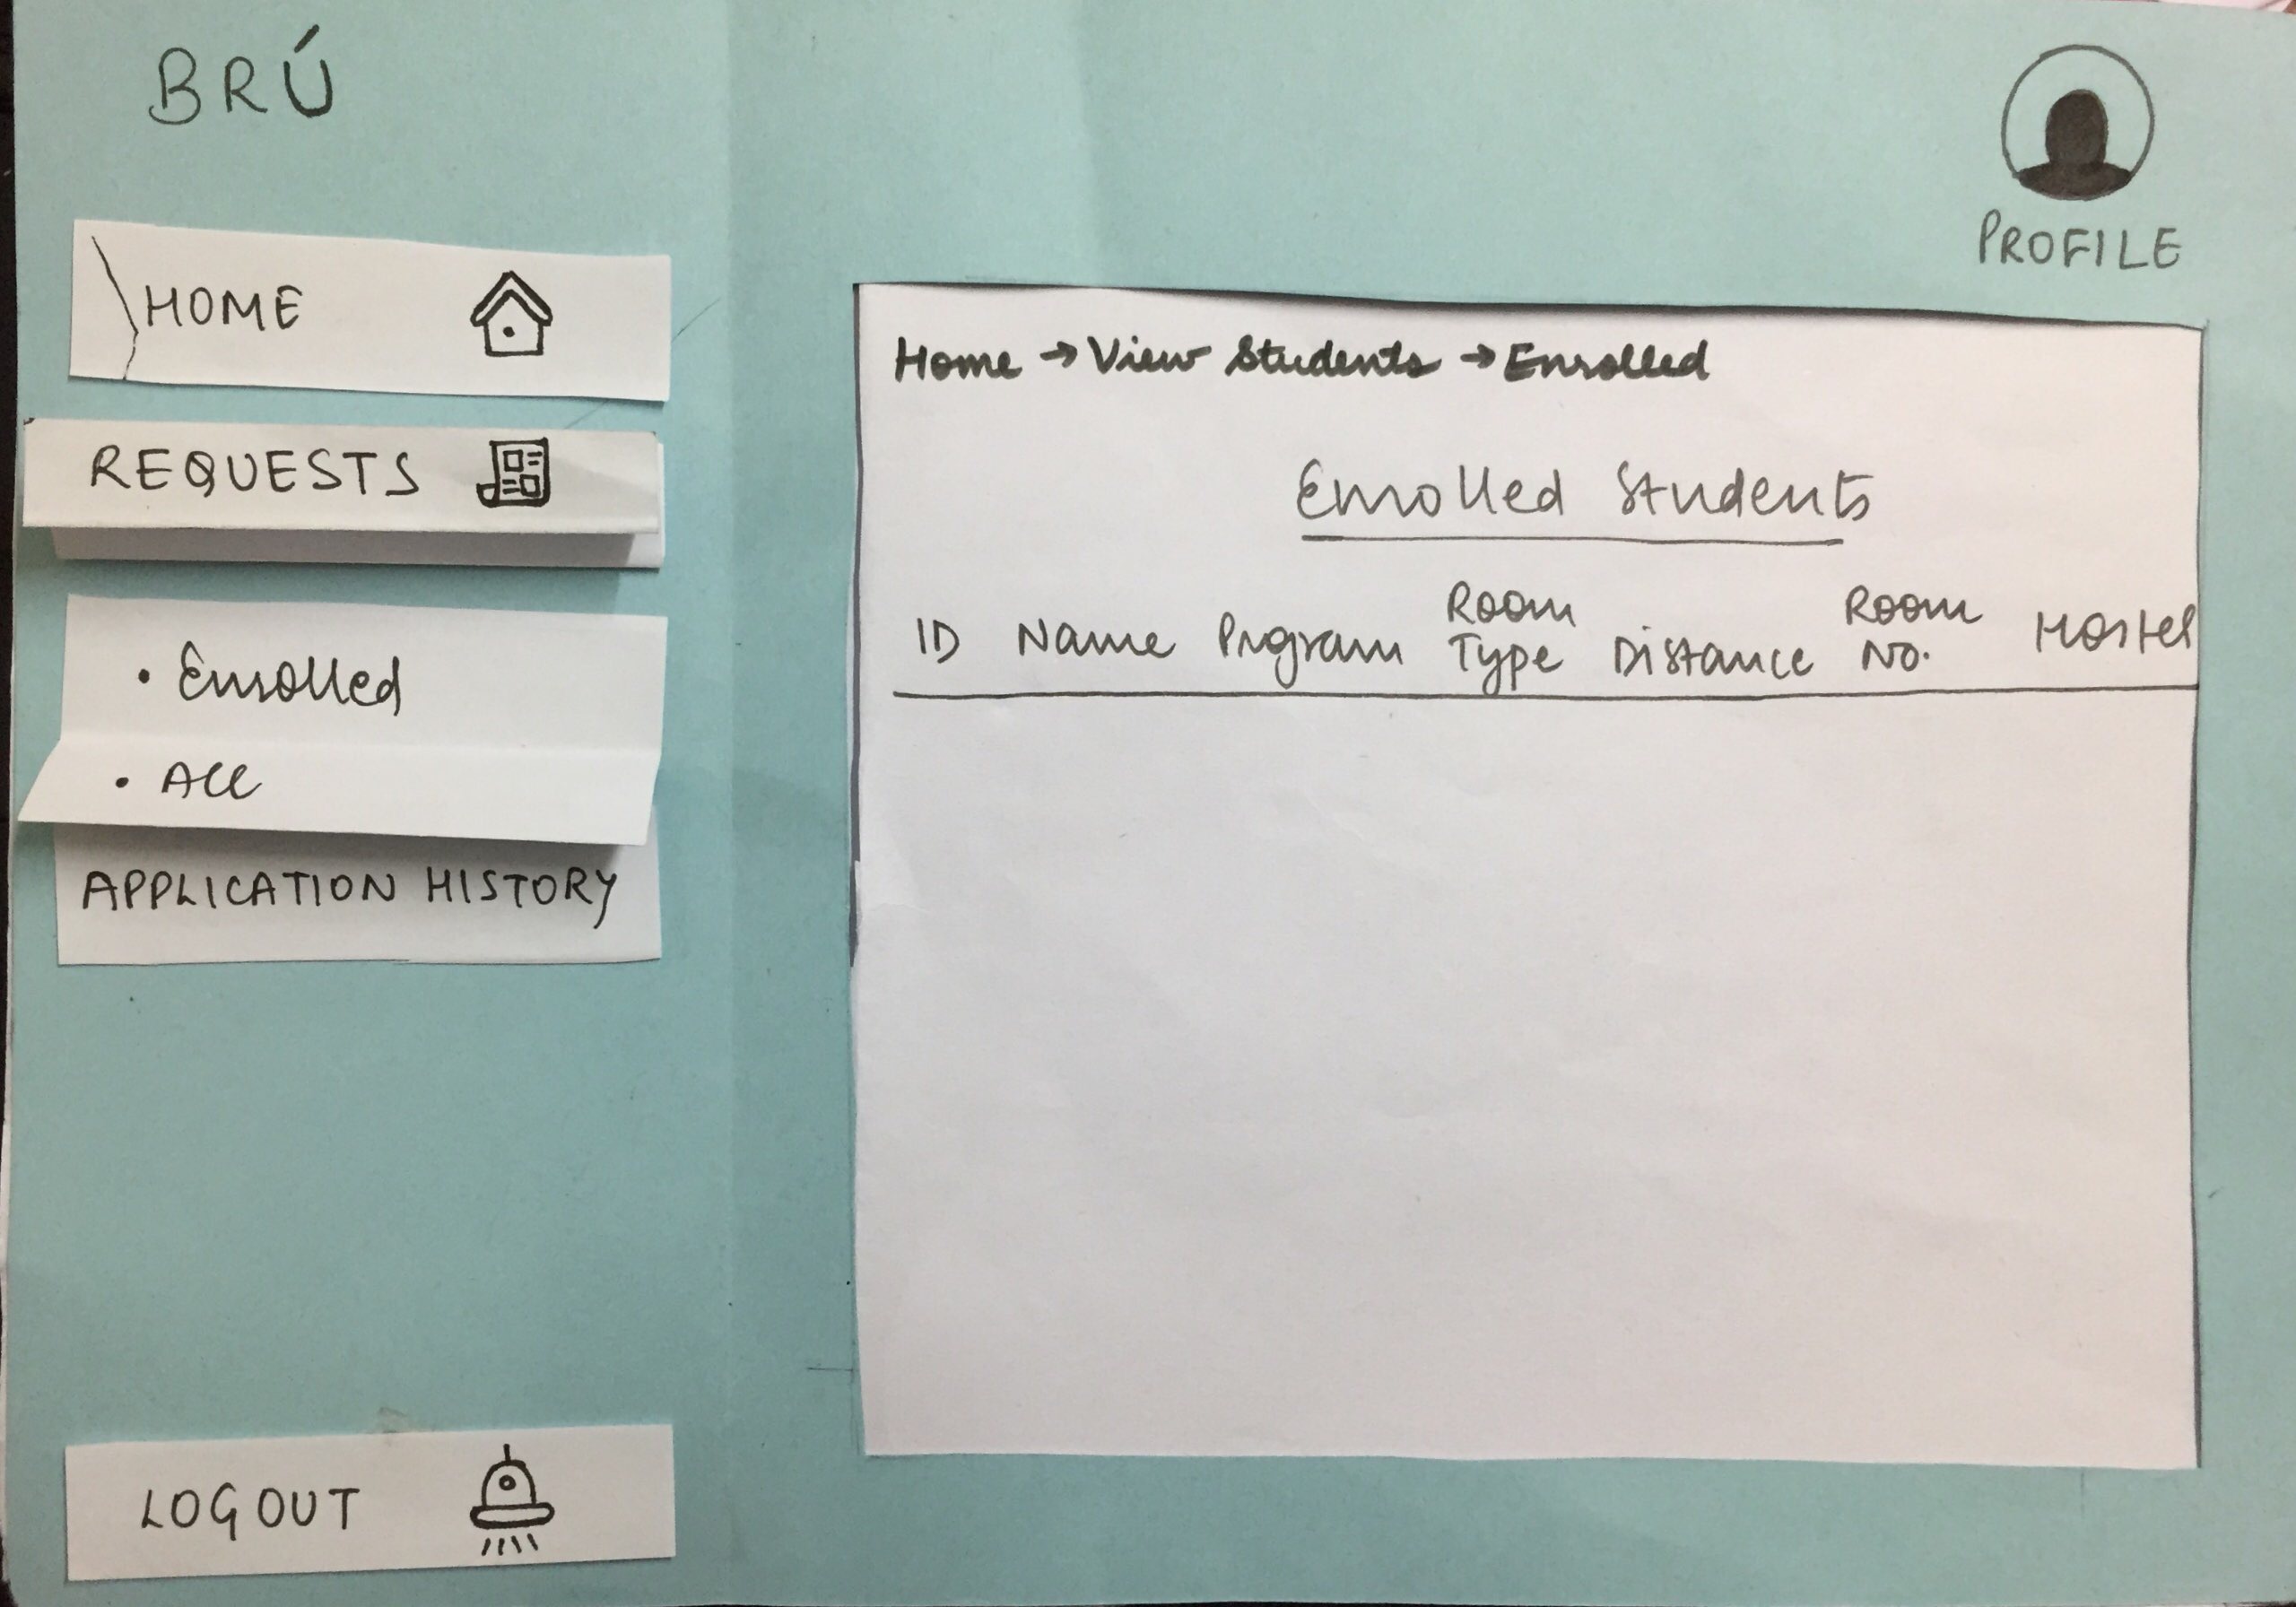 BRÚ
PROFILE
HOME
REQUESTS
• Enrolled
• All
APPLICATION HISTORY
LOGOUT
Home → View Students → Enrolled
Enrolled Students
ID Name Program Room Type Distance Room No. Hostel